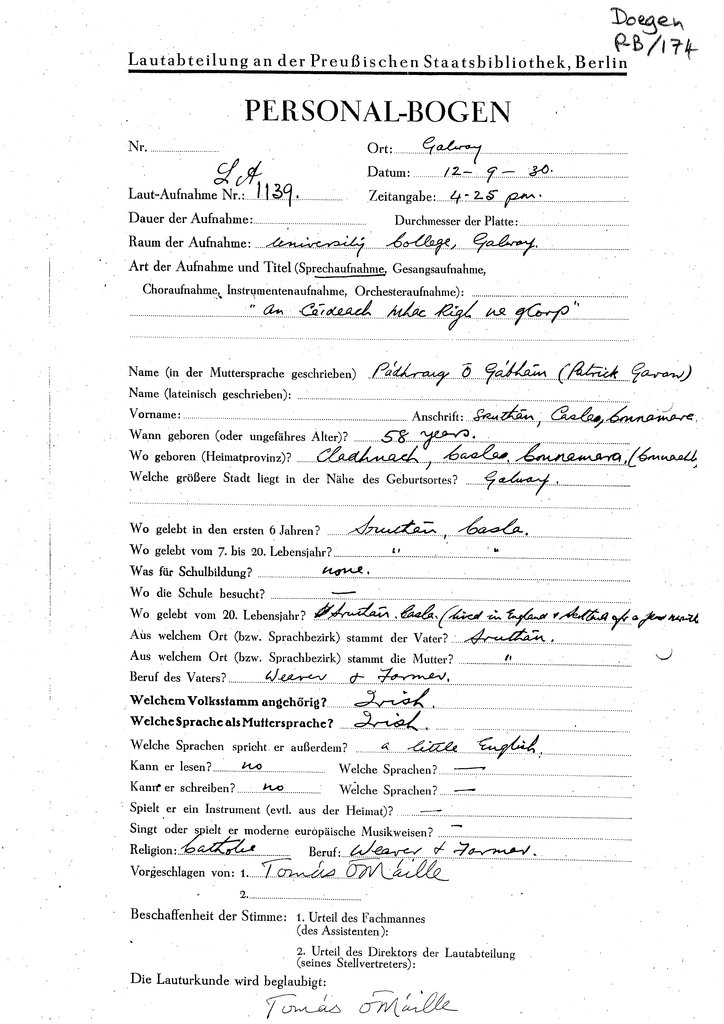 Doegen
RB/174
Lautabteilung an der Preußischen Staatsbibliothek, Berlin
PERSONAL-BOGEN
Nr.
Ort: Galway
LA
Datum: 12 - 9 - 30.
Laut-Aufnahme Nr.: 1139.
Zeitangabe: 4-25 pm.
Dauer der Aufnahme:
Durchmesser der Platte:
Raum der Aufnahme: University College, Galway.
Art der Aufnahme und Titel (Sprechaufnahme, Gesangsaufnahme,
Choraufnahme, Instrumentenaufnahme, Orchesteraufnahme):
"An Cóideach Mhac Rígh na gCorp"
Name (in der Muttersprache geschrieben) Pádhraig Ó Gábháin (Patrick Gavan)
Name (lateinisch geschrieben):
Vorname: Anschrift: Sruthán, Casla, Connemara
Wann geboren (oder ungefähres Alter)? 58 years.
Wo geboren (Heimatprovinz)? Cladhnach, Casla, Connemara, (Connacht,
Welche größere Stadt liegt in der Nähe des Geburtsortes? Galway.
Wo gelebt in den ersten 6 Jahren? Sruthán, Casla.
Wo gelebt vom 7. bis 20. Lebensjahr? " "
Was für Schulbildung? none.
Wo die Schule besucht? —
Wo gelebt vom 20. Lebensjahr? Sruthán, Casla. (lived in England & Scotland for a few months
Aus welchem Ort (bzw. Sprachbezirk) stammt der Vater? Sruthán.
Aus welchem Ort (bzw. Sprachbezirk) stammt die Mutter? "
Beruf des Vaters? Weaver & Farmer.
Welchem Volksstamm angehörig? Irish.
Welche Sprache als Muttersprache? Irish.
Welche Sprachen spricht er außerdem? a little English.
Kann er lesen? no Welche Sprachen? —
Kann er schreiben? no Welche Sprachen? —
Spielt er ein Instrument (evtl. aus der Heimat)? —
Singt oder spielt er moderne europäische Musikweisen? —
Religion: Catholic Beruf: Weaver & Farmer.
Vorgeschlagen von: 1. Tomás Ó Máille
2.
Beschaffenheit der Stimme: 1. Urteil des Fachmannes
(des Assistenten):
2. Urteil des Direktors der Lautabteilung
(seines Stellvertreters):
Die Lauturkunde wird beglaubigt:
Tomás Ó Máille